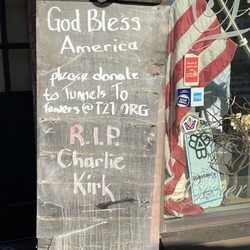 God Bless
America
please donate
to Tunnels To
Towers@T2T.ORG
R.I.P.
Charlie
Kirk